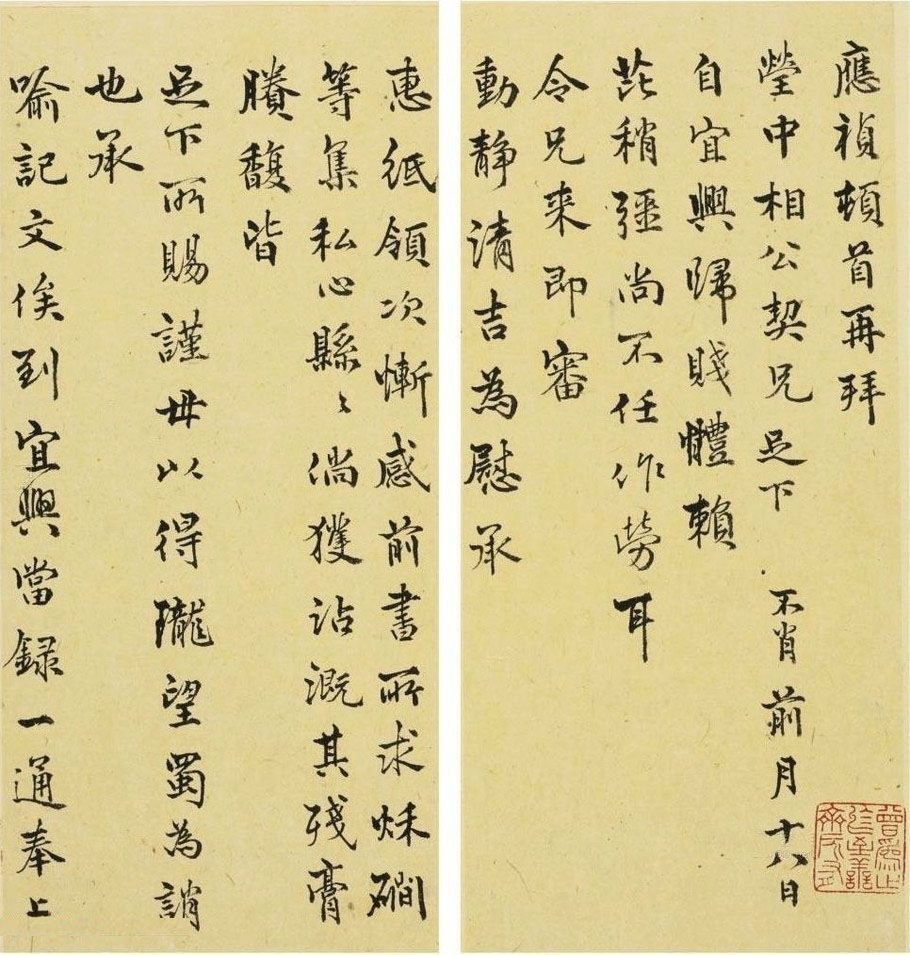 應禎頓首再拜
瑩中相公契兄足下 不肖前月十八日
自宜興歸賤體賴
芘稍彊尚不任作勞耳
令兄来即審
動静清吉為慰承
惠紙領次慚感前書所求秌磵
等集私心縣〻倘獲沾溉其残膏
賸馥皆
足下所賜謹毋以得隴望蜀為誚
也承
喻記文俟到宜興當録一通奉上